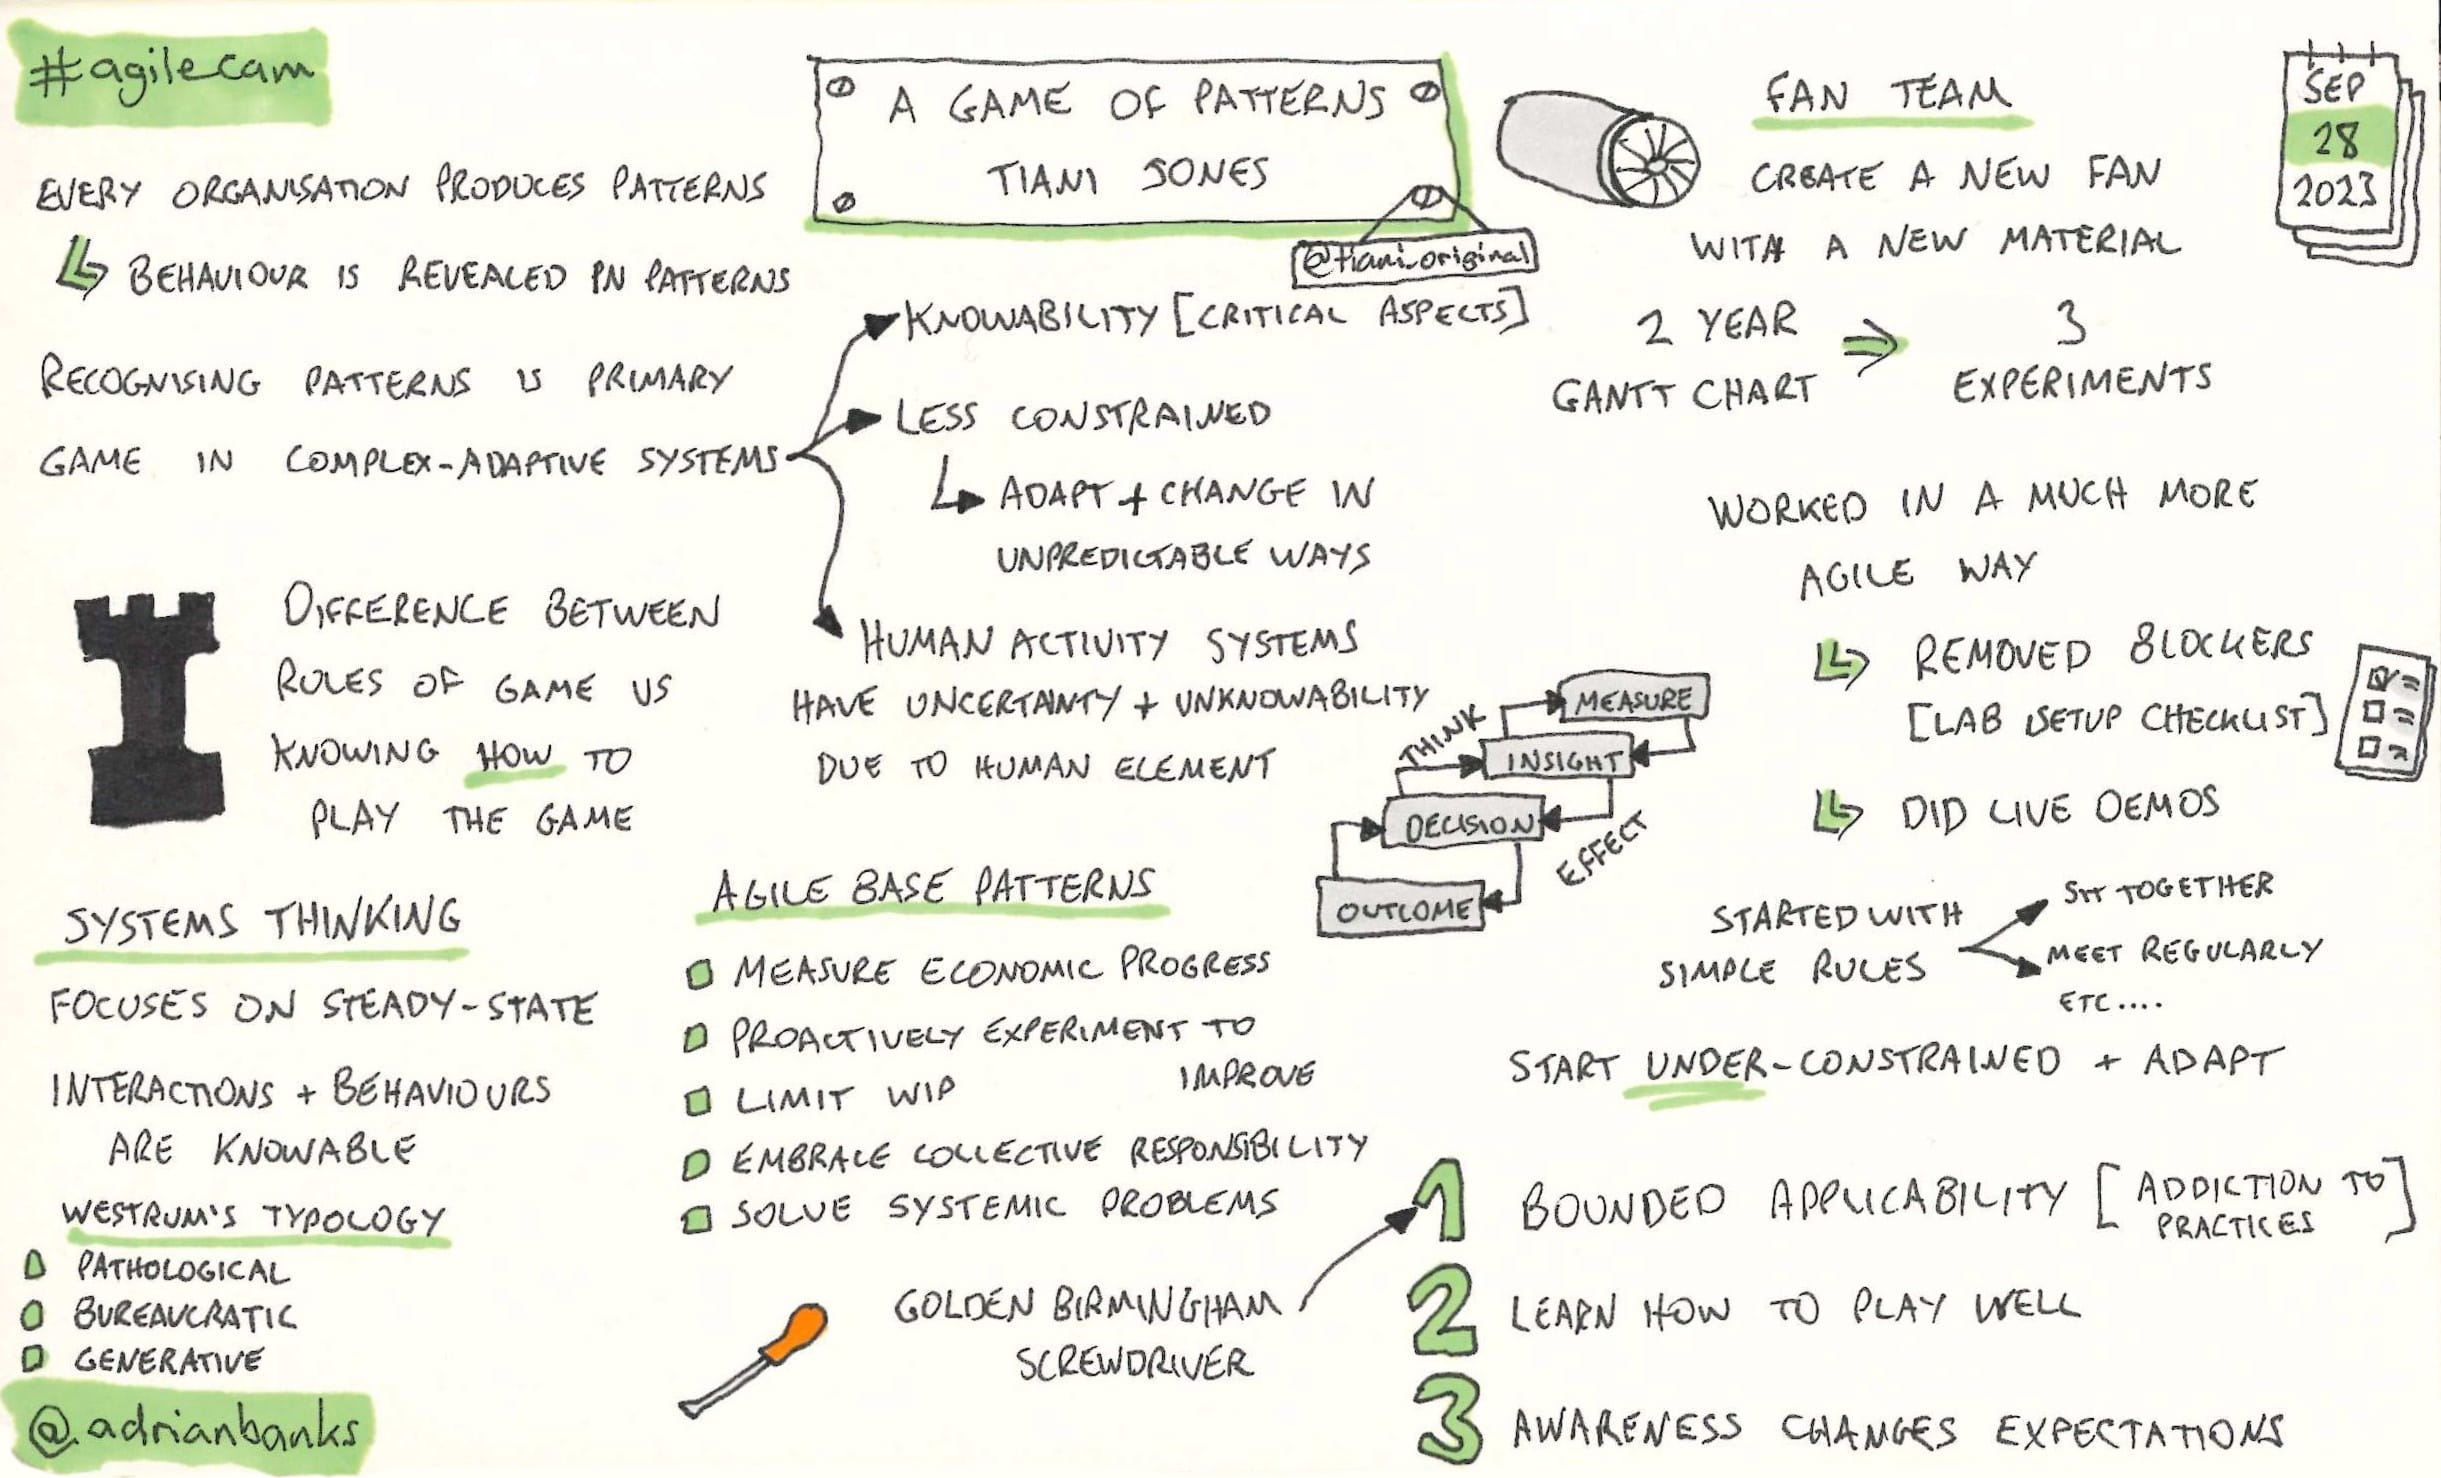 #agilecam
A GAME OF PATTERNS
TIANI JONES
@tiani_original
SEP
28
2023
EVERY ORGANISATION PRODUCES PATTERNS
BEHAVIOUR IS REVEALED IN PATTERNS
RECOGNISING PATTERNS IS PRIMARY
GAME IN COMPLEX-ADAPTIVE SYSTEMS
KNOWABILITY [CRITICAL ASPECTS]
LESS CONSTRAINED
ADAPT + CHANGE IN
UNPREDICTABLE WAYS
HUMAN ACTIVITY SYSTEMS
HAVE UNCERTAINTY + UNKNOWABILITY
DUE TO HUMAN ELEMENT
DIFFERENCE BETWEEN
RULES OF GAME VS
KNOWING HOW TO
PLAY THE GAME
SYSTEMS THINKING
FOCUSES ON STEADY-STATE
INTERACTIONS + BEHAVIOURS
ARE KNOWABLE
WESTRUM'S TYPOLOGY
PATHOLOGICAL
BUREAUCRATIC
GENERATIVE
@adrianbanks
AGILE BASE PATTERNS
MEASURE ECONOMIC PROGRESS
PROACTIVELY EXPERIMENT TO
IMPROVE
LIMIT WIP
EMBRACE COLLECTIVE RESPONSIBILITY
SOLVE SYSTEMIC PROBLEMS
THINK
MEASURE
INSIGHT
DECISION
OUTCOME
EFFECT
FAN TEAM
CREATE A NEW FAN
WITH A NEW MATERIAL
2 YEAR
GANTT CHART
3
EXPERIMENTS
WORKED IN A MUCH MORE
AGILE WAY
REMOVED BLOCKERS
[LAB SETUP CHECKLIST]
DID LIVE DEMOS
STARTED WITH
SIMPLE RULES
SIT TOGETHER
MEET REGULARLY
ETC....
START UNDER-CONSTRAINED + ADAPT
GOLDEN BIRMINGHAM
SCREWDRIVER
1 BOUNDED APPLICABILITY [ADDICTION TO
PRACTICES]
2 LEARN HOW TO PLAY WELL
3 AWARENESS CHANGES EXPECTATIONS